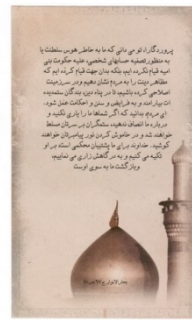 پروردگارا، تو می دانی که ما به خاطر هوس سلطنت یا
به منظور تصفیه حسابهای شخصی، علیه حکومت بنی
امیه قیام نکرده ایم، بلکه بدان جهت قیام کرده ایم که
مظاهر دینت را به مردم نشان دهیم و در سرزمینت
اصلاحی کرده باشیم، تا در پناه دین، بندگان ستمدیده
ات بیارامند و به فرایض و سنن و احکامت عمل شود.
ای مردم، بدانید که اگر شماها ما را یاری نکنید و
درباره ما انصاف ندهید، ستمگران بر سرتان مسلط
خواهند شد و در خاموش کردن نور پیامبرتان خواهند
کوشید. خداوند برای ما پشتیبان محکمی است، بر او
تکیه می کنیم و به درگاهش زاری می نماییم،
وبازگشت ما به سوی اوست
بحار الانوار ج